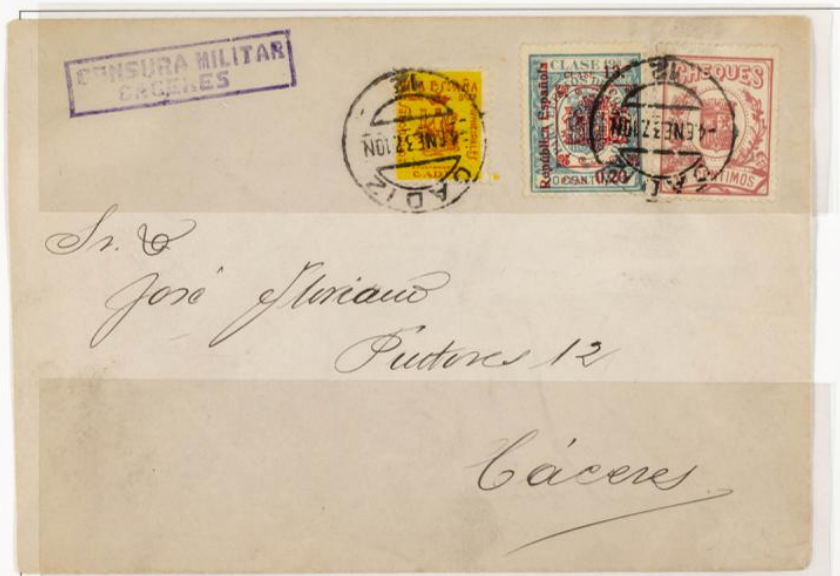 CENSURA MILITAR
CACERES
ESPAÑA
CADIZ
-4.ENE37.10N
CADIZ
CLASE 19
República Española
0,20
CENT
CHEQUES
CENTIMOS
-4.ENE37.10N
Sr. D
José Floriano
Pintores 12
Cáceres